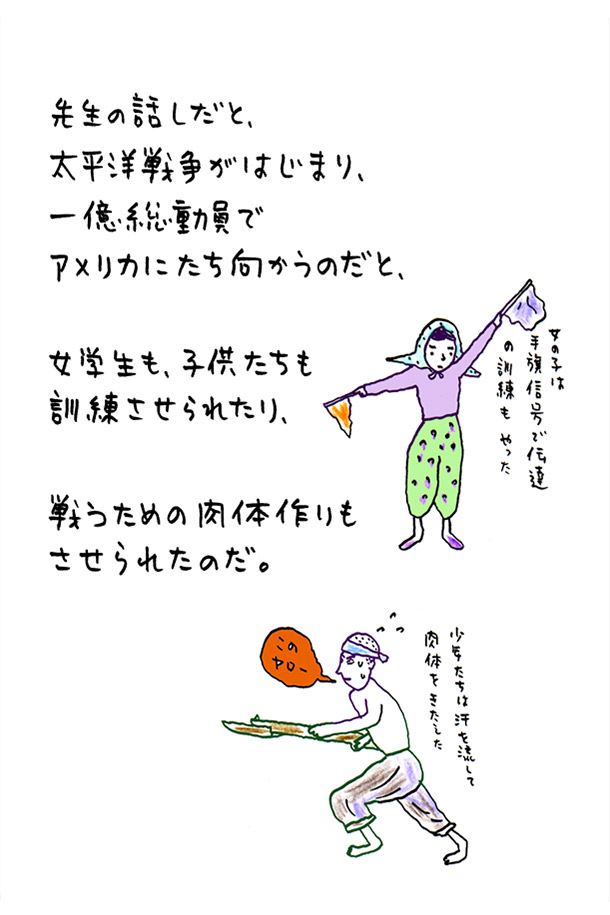 先生の話しだと、
太平洋戦争がはじまり、
一億総動員で
アメリカにたち向かうのだと、
女学生も、子供たちも
訓練させられたり、
戦うための肉体作りも
させられたのだ。
女の子は
手旗信号で伝達
の訓練も やった
この
ヤロー
少年たちは汗を流して
肉体をきたえた